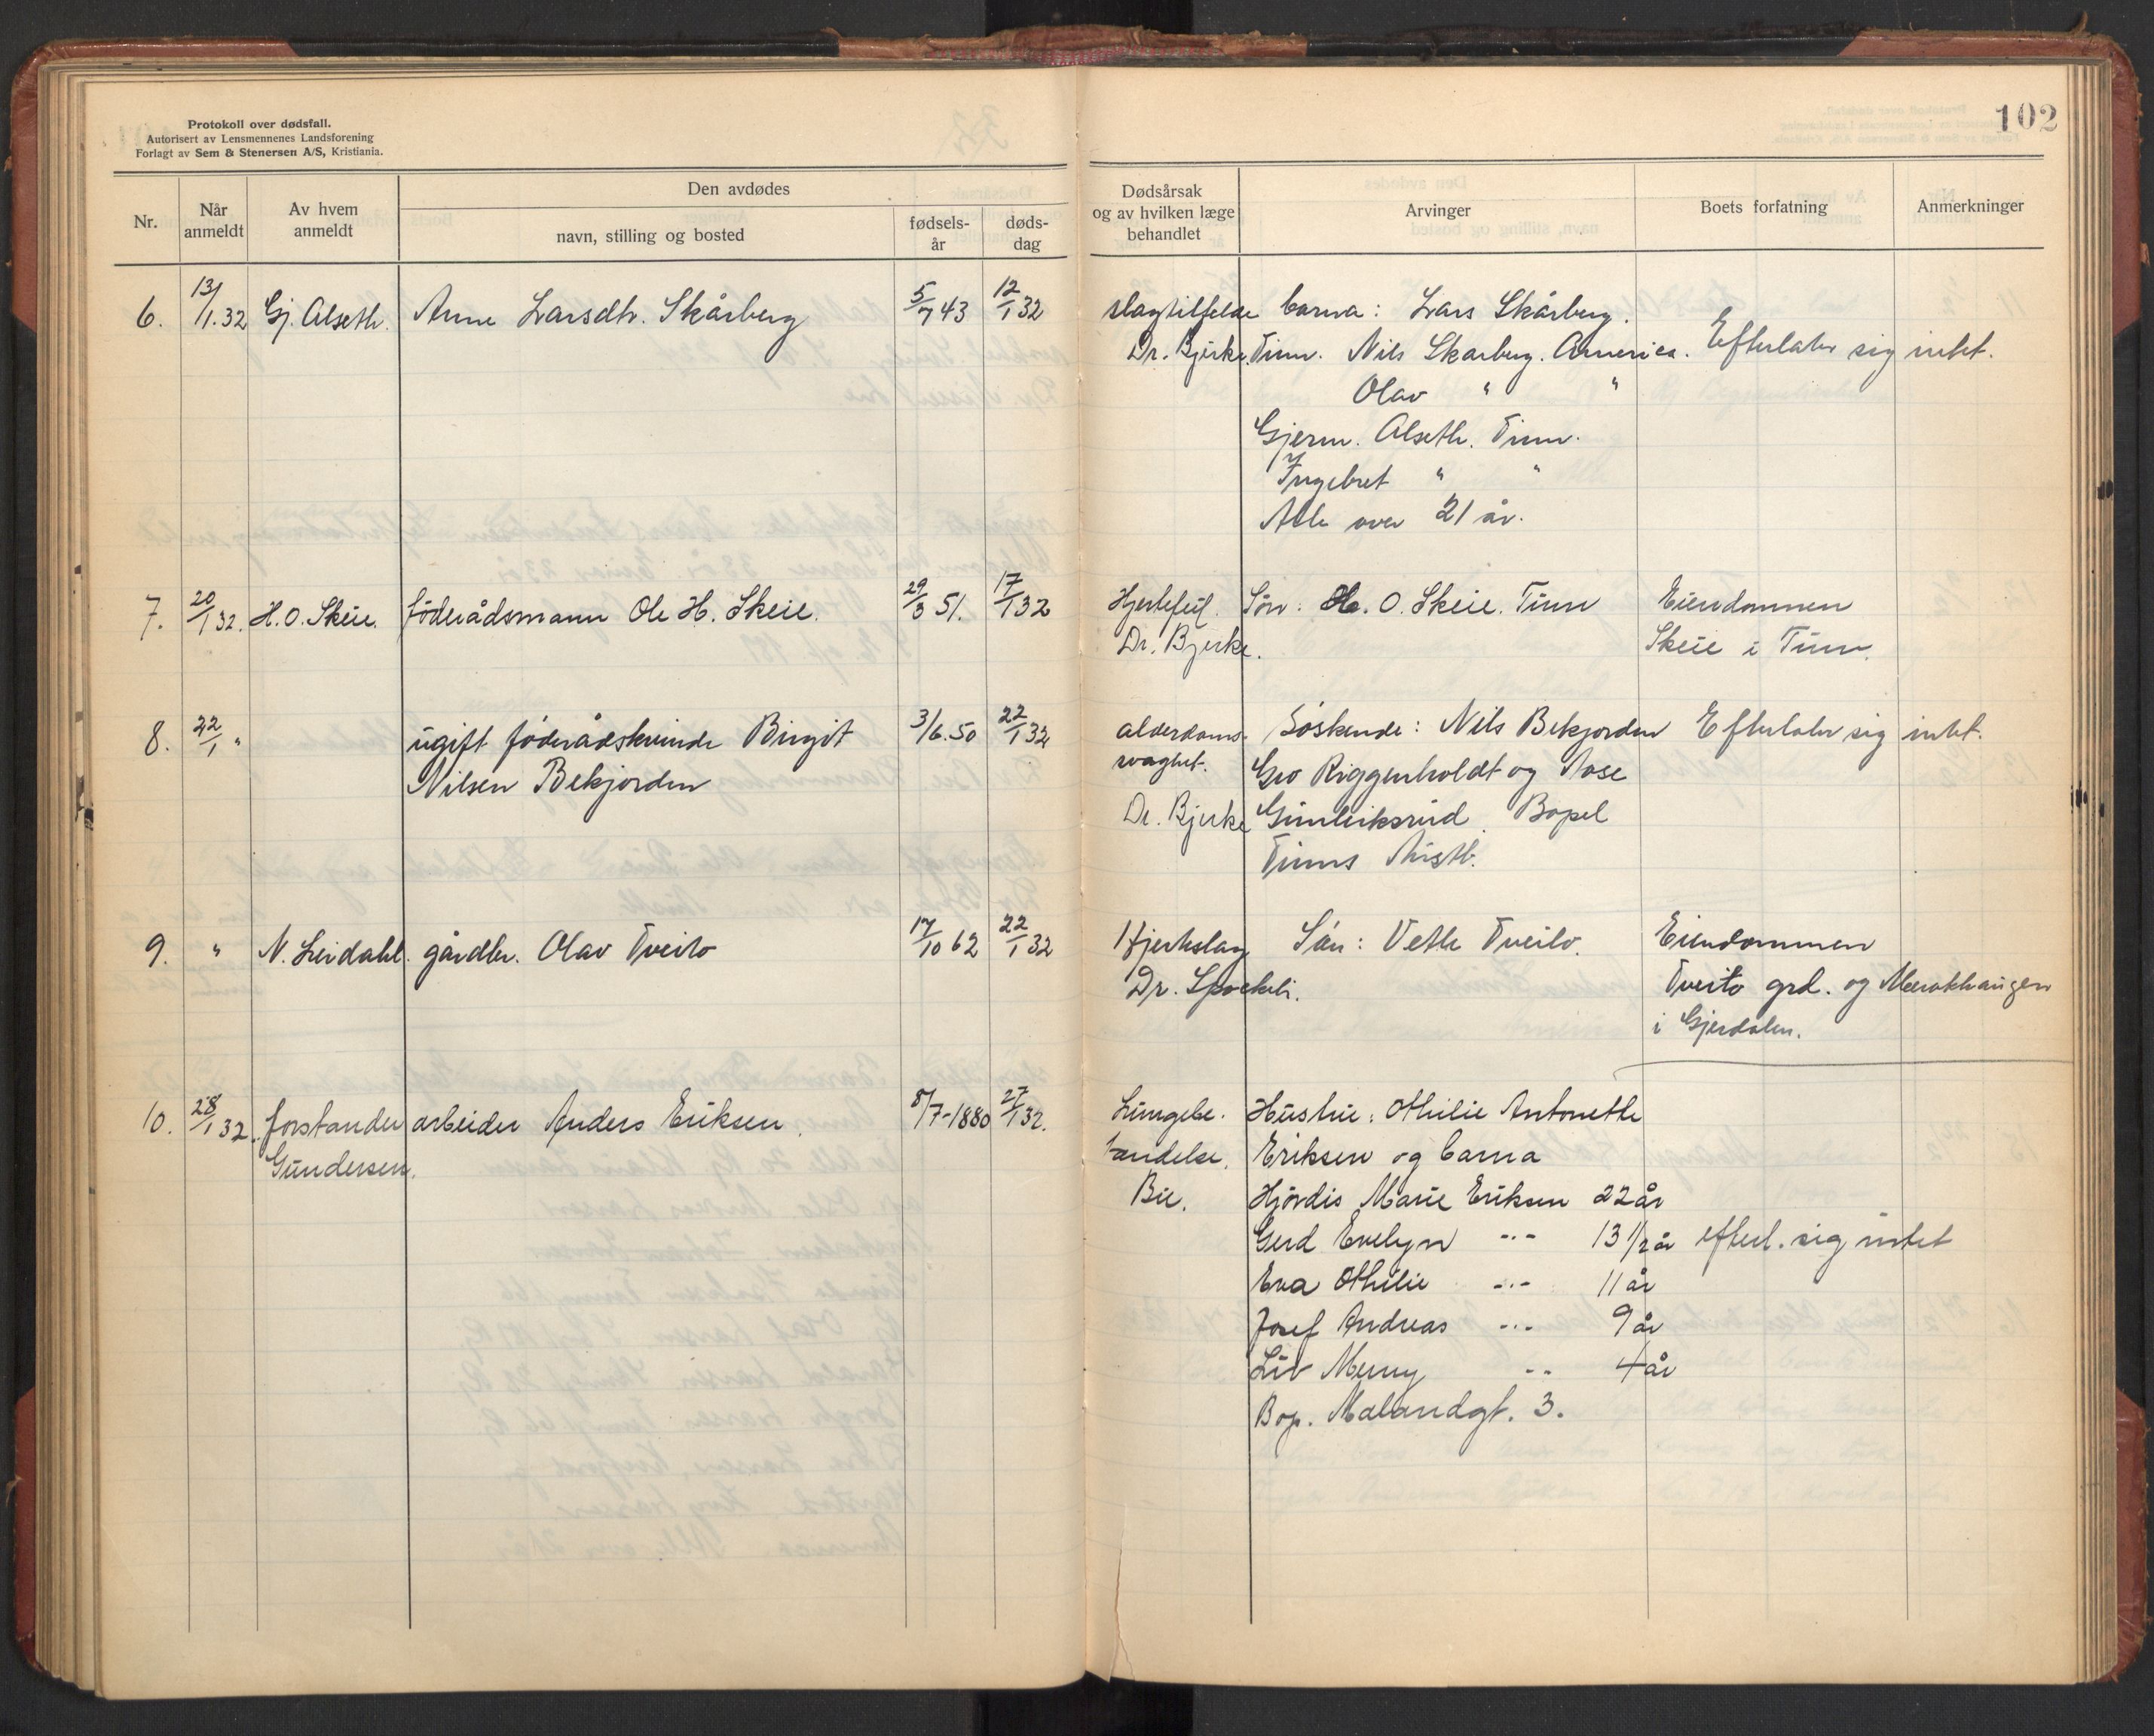 102
Protokoll over dødsfall.
Autorisert av Lensmennenes Landsforening
Forlagt av Sem & Stenersen A/S, Kristiania.
Nr.
Når anmeldt
Av hvem anmeldt
Den avdødes
navn, stilling og bosted
fødsels-år
døds-dag
Dødsårsak og av hvilken læge behandlet
Arvinger
Boets forfatning
Anmerkninger
6. 13/1.32 Gj. Alseth. Anne Larsdtr. Skårberg 5/7 43 12/1 32 slagtilfelde barna: Lars Skårberg.
Dr. Bjerke. Tinn. Nils Skarberg. America. Efterlater sig intet.
Olav " "
Gjerm. Alseth. Tinn.
Ingebret " "
Alle over 21 år.
7. 20/1 32. H.O. Skeie. föderådsmann Ole H. Skeie. 29/3 51. 17/1 32 Hjertefeil. Sön: H. O. Skeie. Tinn Eiendommen
Dr. Bjerke. Skeie i Tinn.
8. 22/1 " ugift föderådskvinde Birgit 3/6.50 22/1 32 alderdoms- Söskende: Nils Bekjorden Efterlater sig intet.
Nilsen Bekjorden svaghet. Gro Riggenholdt og Aase
Dr. Bjerke Gunleiksrud. Bopel
Tinns Austb.
9. " N. Leirdahl. gårdbr. Olav Tveito 17/10 62 22/1 32 Hjerteslag Sön: Vetle Tveito. Eiendommen
Dr. Spockeli. Tveito grd. og Mærakhaugen
i Gjerdalen.
10. 28/1 32. forstander arbeider Anders Eriksen. 8/7-1880 27/1 32. Lungebe- Hustru: Othilie Antonette
Gundersen. tændelse. Eriksen og barna
Bie. Hjördis Marie Eriksen 22 år
Gerd Evelyn -"- 13 1/2 år efterl. sig intet
Eva Othilie -"- 11 år
Josef Andreas -"- 9 år
Liv Merny -"- 4 år
Bop. Malandgt. 3.